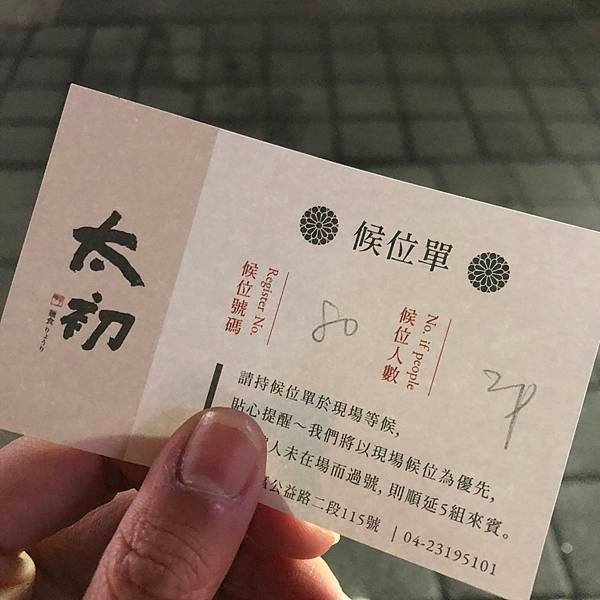 太初
麵食りょうり
候位單
Register No.
候位號碼
80
No. if people
候位人數
2p
請持候位單於現場等候,
貼心提醒～我們將以現場候位為優先,
人未在場而過號, 則順延5組來賓。
公益路二段115號 | 04-23195101